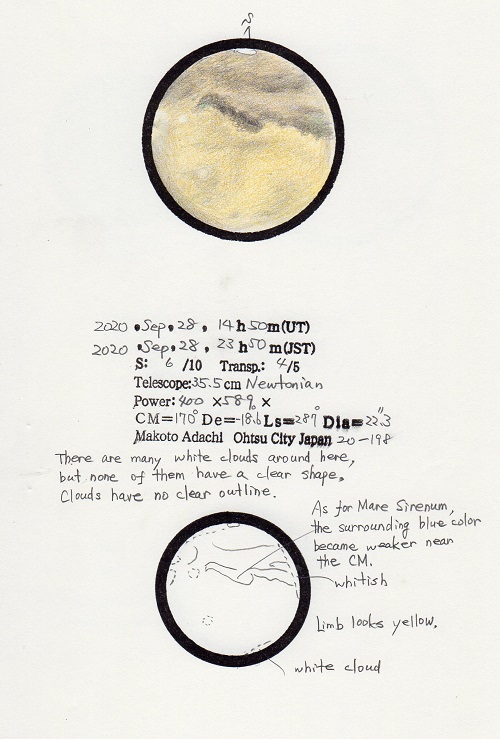 S
2020 . Sep. 28, 14h50m(UT)
2020 . Sep. 28, 23h50m(JST)
S: 6 /10 Transp.: 4/5
Telescope:35.5cm Newtonian
Power:400 ×589 ×
CM=170° De=-18.6 Ls=287° Dia=22".3
Makoto Adachi Ohtsu City Japan 20-198
There are many white clouds around here,
but none of them have a clear shape.
Clouds have no clear outline.
As for Mare Sirenum,
the surrounding blue color
became weaker near
the CM.
whitish
Limb looks yellow.
white cloud